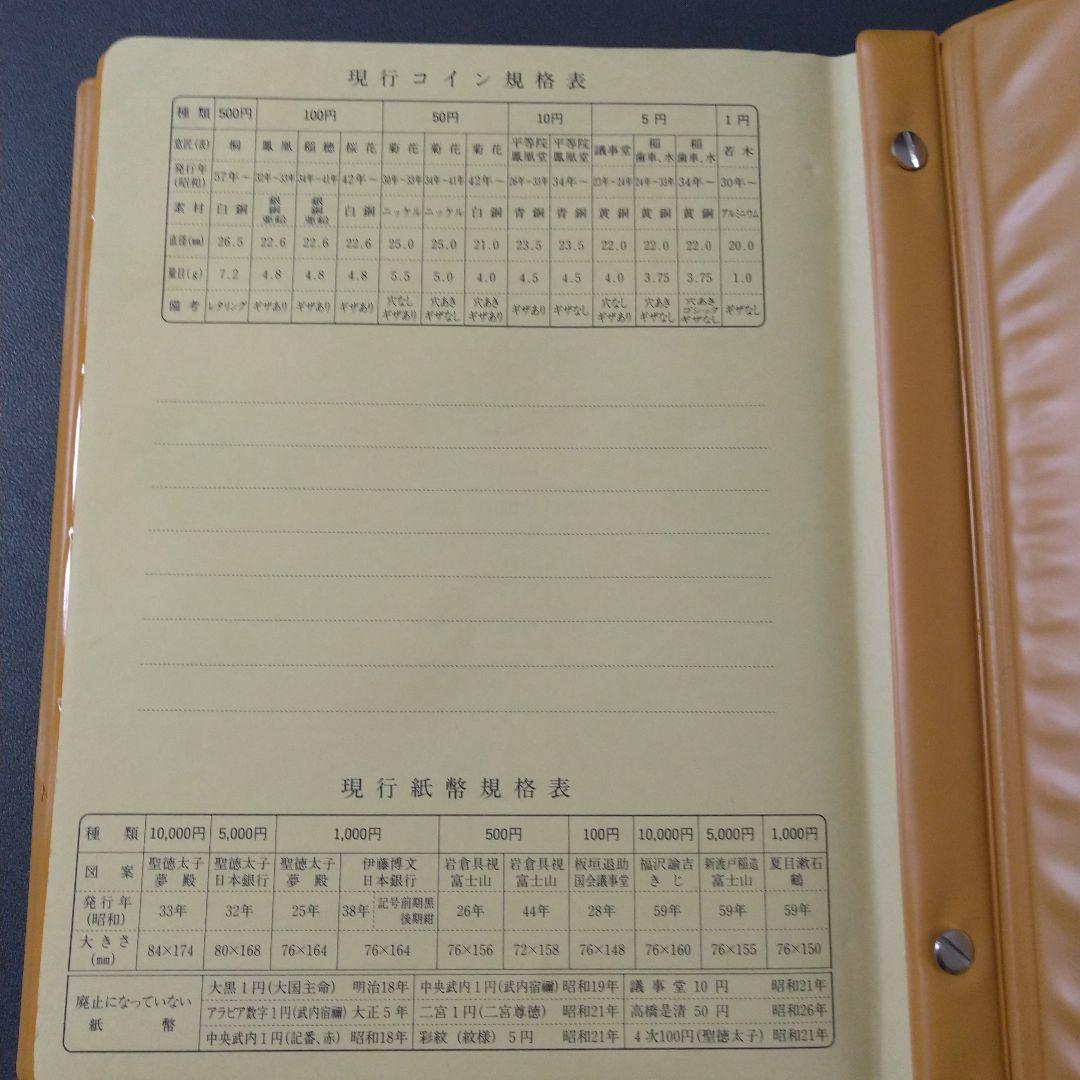 現行コイン規格表
種類 500円 100円 50円 10円 5円 1円
意匠(表) 桐 鳳凰 稲穂 桜花 菊花 菊花 菊花 平等院鳳凰堂 平等院鳳凰堂 議事堂 稲歯車、水 稲歯車、水 若木
発行年(昭和) 57年~ 32年~33年 34年~41年 42年~ 30年~33年 34年~41年 42年~ 26年~33年 34年~ 23年~24年 24年~33年 34年~ 30年~
素材 白銅 銀銅亜鉛 銀銅亜鉛 白銅 ニッケル ニッケル 白銅 青銅 青銅 黄銅 黄銅 黄銅 アルミニウム
直径(mm) 26.5 22.6 22.6 22.6 25.0 25.0 21.0 23.5 23.5 22.0 22.0 22.0 20.0
量目(g) 7.2 4.8 4.8 4.8 5.5 5.0 4.0 4.5 4.5 4.0 3.75 3.75 1.0
備考 レタリング ギザあり ギザあり ギザあり 穴なしギザあり 穴あきギザなし 穴あきギザあり ギザあり ギザなし 穴なしギザあり 穴あきギザなし 穴あきゴシックギザなし ギザなし
現行紙幣規格表
種類 10,000円 5,000円 1,000円 500円 100円 10,000円 5,000円 1,000円
図案 聖徳太子夢殿 聖徳太子日本銀行 聖徳太子夢殿 伊藤博文日本銀行 岩倉具視富士山 岩倉具視富士山 板垣退助国会議事堂 福沢諭吉きじ 新渡戸稲造富士山 夏目漱石鶴
発行年(昭和) 33年 32年 25年 38年 記号前期黒後期紺 26年 44年 28年 59年 59年 59年
大きさ(mm) 84×174 80×168 76×164 76×164 76×156 72×158 76×148 76×160 76×155 76×150
廃止になっていない紙幣
大黒1円(大国主命) 明治18年 中央武内1円(武内宿禰) 昭和19年 議事堂10円 昭和21年
アラビア数字1円(武内宿禰) 大正5年 二宮1円(二宮尊徳) 昭和21年 高橋是清50円 昭和26年
中央武内1円(記番、赤) 昭和18年 彩紋(紋様)5円 昭和21年 4次100円(聖徳太子) 昭和21年